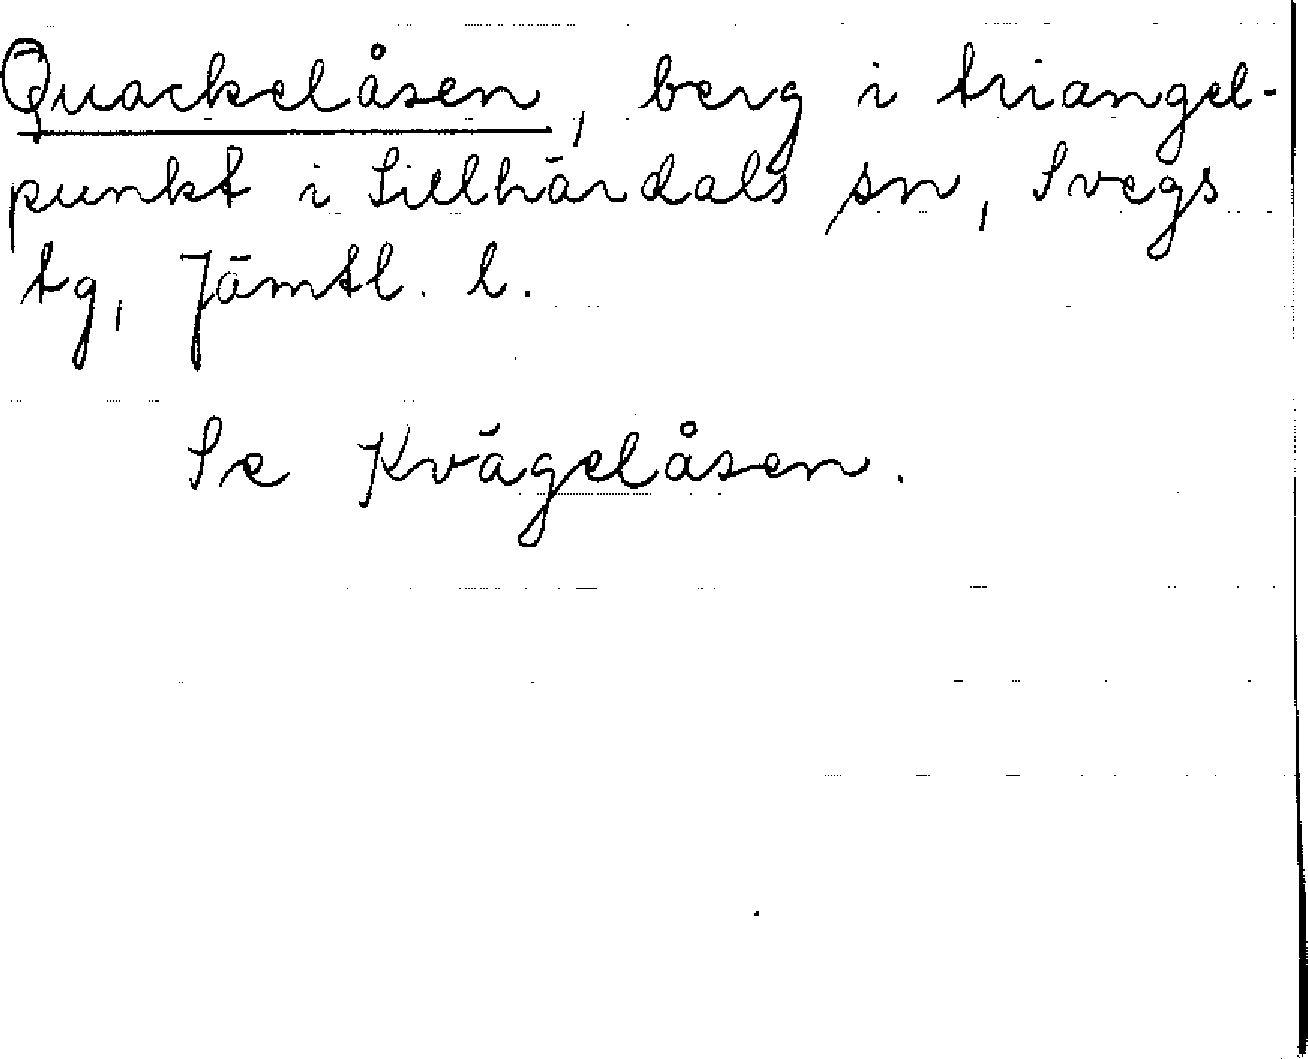 Quackelåsen, berg i triangel-
punkt i Lillhärdals sn, Svegs
tg, Jämtl. l.
Se Kvägelåsen.